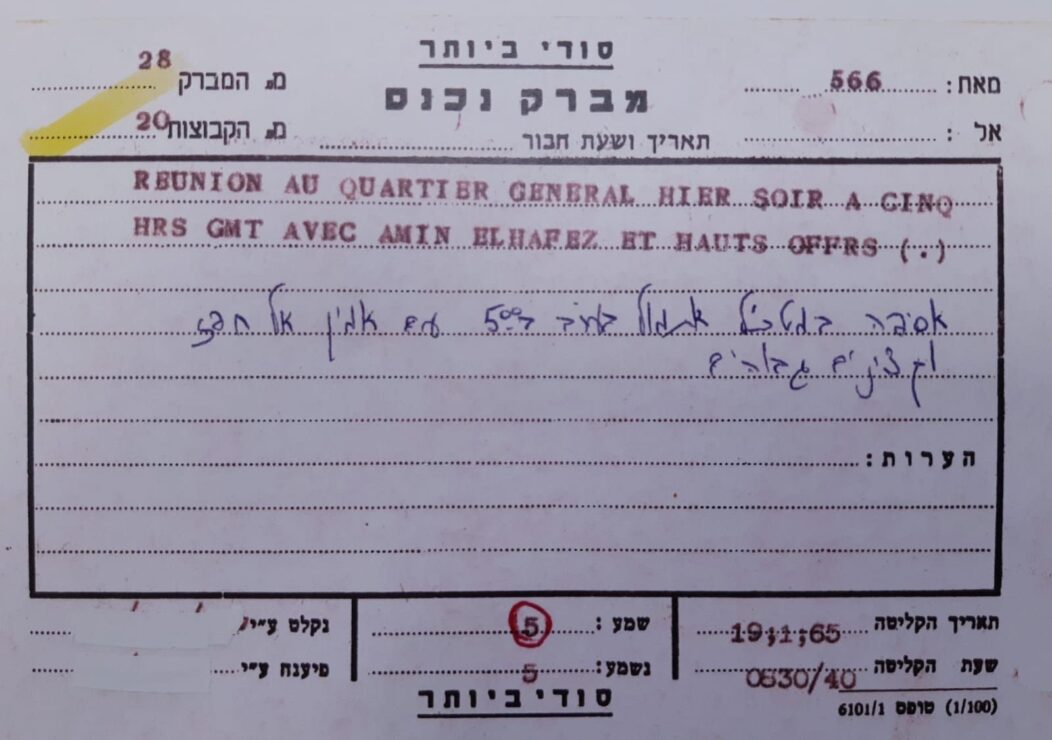 סודי ביותר
מאת: 566
מברק נכנס
מס. המברק 28
אל:
תאריך ושעת חבור
מס. הקבוצות 20
REUNION AU QUARTIER GENERAL HIER SOIR A CINQ
HRS GMT AVEC AMIN ELHAFEZ ET HAUTS OFFRS (.)
אסיפה במטכ"ל אתמול בערב ב-5⁰⁰ עם אמין אל חפז
וקצינים גבוהים
הערות:
תאריך הקליטה 19;1;65
שמע: 5
נקלט ע"י
שעת הקליטה 0830/40
נשמע: 5
פיענח ע"י
סודי ביותר
(1/100) טופס 6101/1